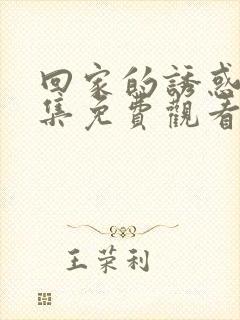 回家的誘惑
集免費觀看
王荣利